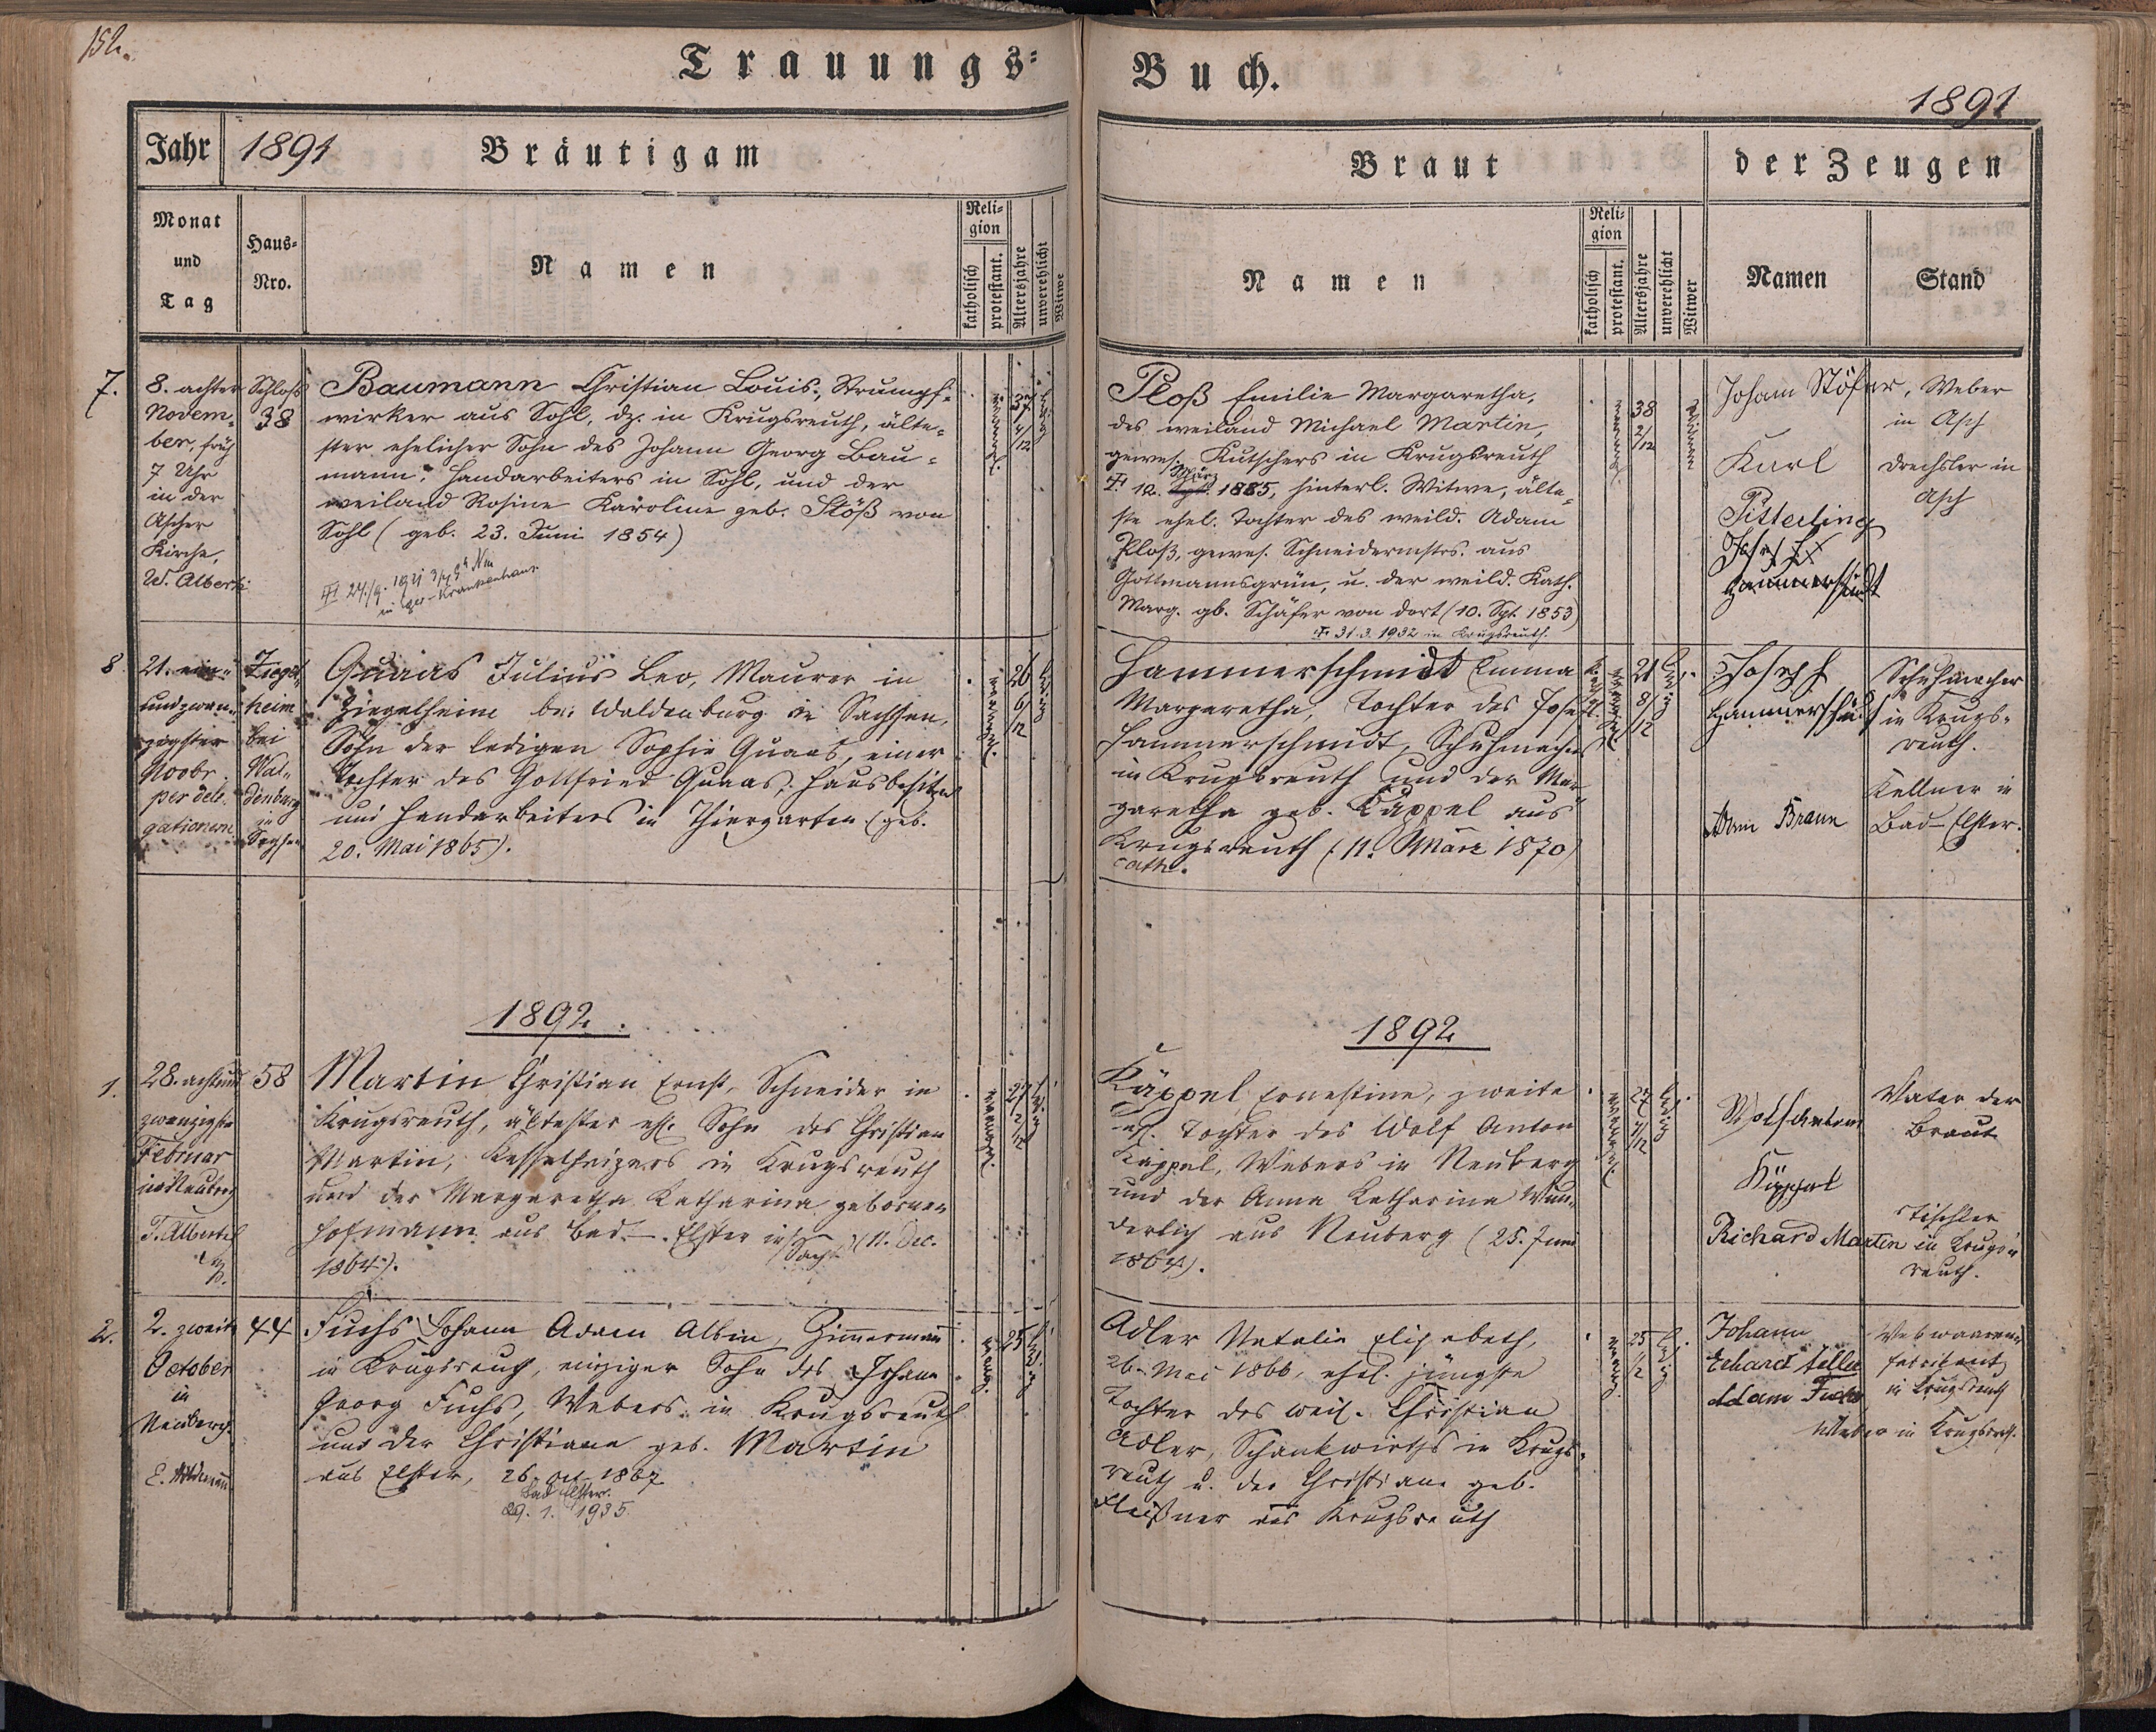 152.
Trauungs-
Buch.
1891
Jahr 1891 Bräutigam
Braut
der Zeugen
Monat
und
Tag
Haus-
Nro.
Namen
Reli-
gion
katholisch
protestant.
Altersjahre
unverehlicht
Witwe
Namen
Reli-
gion
katholisch
protestant.
Altersjahre
unverehlicht
Witwer
Namen
Stand
7.
8. achter
Novem-
ber, früh
7 Uhr
in der
Ascher
Kirche,
W. Alberti
Schloß
38
Baumann Christian Louis, Strumpf-
wirker aus Sohl, dz. in Krugsreuth, älte-
ster ehelicher Sohn des Johann Georg Bau-
mann, Handarbeiters in Sohl, und der
weiland Rosine Karoline geb. Stöß von
Sohl (geb. 23. Juni 1854)
in Krankenhaus
37
4/12
Ploß Emilie Margaretha,
des weiland Michael Martin,
gewes. Kutschers in Krugsreuth
März
12. 1885, hinterl. Witwe, älte-
ste ehel. Tochter des weild. Adam
Ploß, gewes. Schneidermstrs. aus
Gottmannsgrün, u. der weild. Kath.
Marg. gb. Schäfer von dort (10. Spt. 1853)
31.3.1932 in Krugsreuth.
38
2/12
Johann Stöfer,
Karl
Pitterling
Weber
in Asch
Drechsler in
Asch
8
21. ein-
undzwan-
zigster
Novbr.
per dele-
gationem
Ziegel-
heim
bei
Wal-
denburg
in
Sachsen
Quaas Julius Leo, Maurer in
Ziegelheim bei Waldenburg in Sachsen,
Sohn der ledigen Sophie Quaas, einer
Tochter des Gottfried Quaas, Hausbesitzers
und Handarbeiters in Thiergarten (geb.
20. Mai 1865).
26
6/12
Hammerschmidt Emma
Margaretha, Tochter des Josef
Hammerschmidt, Schuhmachers
in Krugsreuth und der Mar-
garetha geb. Käppel aus
Krugsreuth (11. März 1870)
cath.
21
8/12
Joseph
Hammerschmidt
Braun
Schuhmacher
in Krugs-
reuth.
Kellner in
Bad-Elster.
1892.
1892
1.
28. achtund
zwanzigste
Februar
in Neuberg
T. Alberti
58
Martin Christian Ernst, Schneider in
Krugsreuth, ältester ehl. Sohn des Christian
Martin, Kesselheizers in Krugsreuth
und der Margaretha Katharina geborenen
Hofmann aus Bad-Elster in Sachs. (11. Dec.
1864).
27
2/12
Käppel Ernestine, zweite
ehl. Tochter des Wolf Anton
Käppel, Webers in Neuberg
und der Anna Katharina Wun-
derlich aus Neuberg (25. Juni
1864).
27
Wolf Anton
Käppel
Richard Martin
Vater der
Braut
Tischler
in Krugs-
reuth.
2.
2. zweite
October
in
Neuberg
44
Fuchs Johann Adam Albin, Zimmermann
in Krugsreuth, einziger Sohn des Johann
Georg Fuchs, Webers in Krugsreuth
und der Christiana geb. Martin
aus Elster, 26. Oct. 1867
Bad Elster.
29. 1. 1935
25
Adler Natalie Elisabeth,
26. Mai 1866, ehel. jüngste
Tochter des weil. Christian
Adler, Schankwirths in Krugs-
reuth u. der Christiane geb.
Fleißner aus Krugsreuth
25
Johann
Erhard
Adam Fuchs
Webwaaren-
fabrikant
in Krugsreuth
Weber in Krugsreuth.